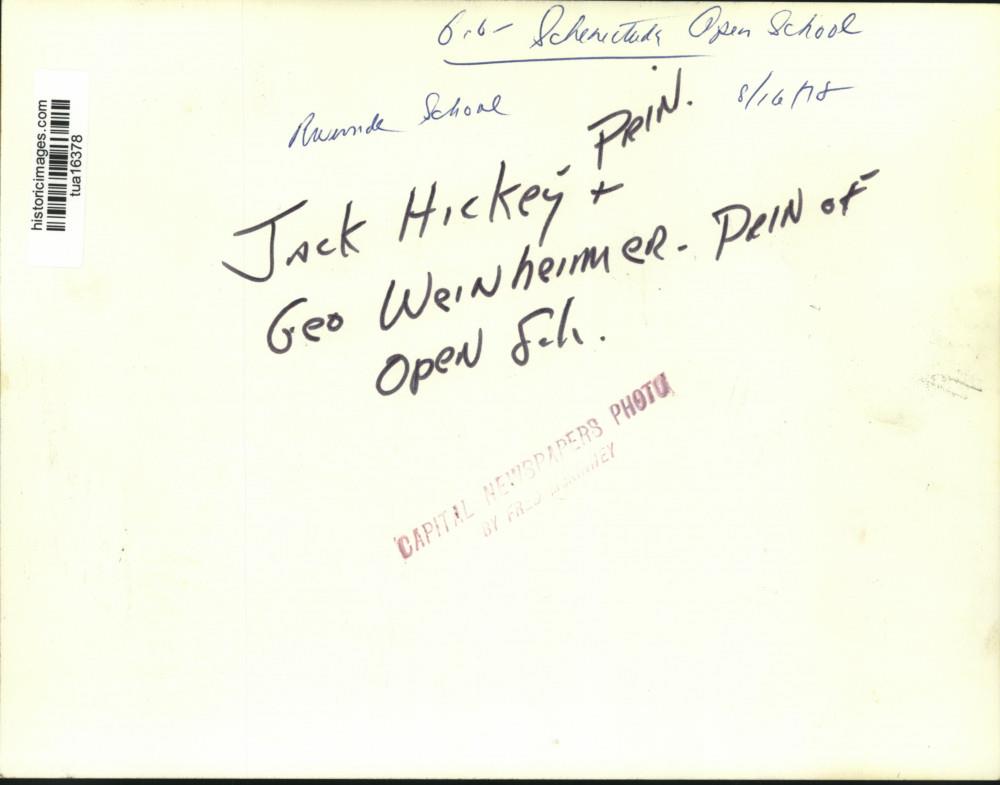 Schenectady Open School
Riverside School
8/16/78
Jack Hickey - PRIN.
+
Geo Weinheimer - PRIN of
Open Sch.
CAPITAL NEWSPAPERS PHOTO
BY FRED
historicimages.com
tua16378